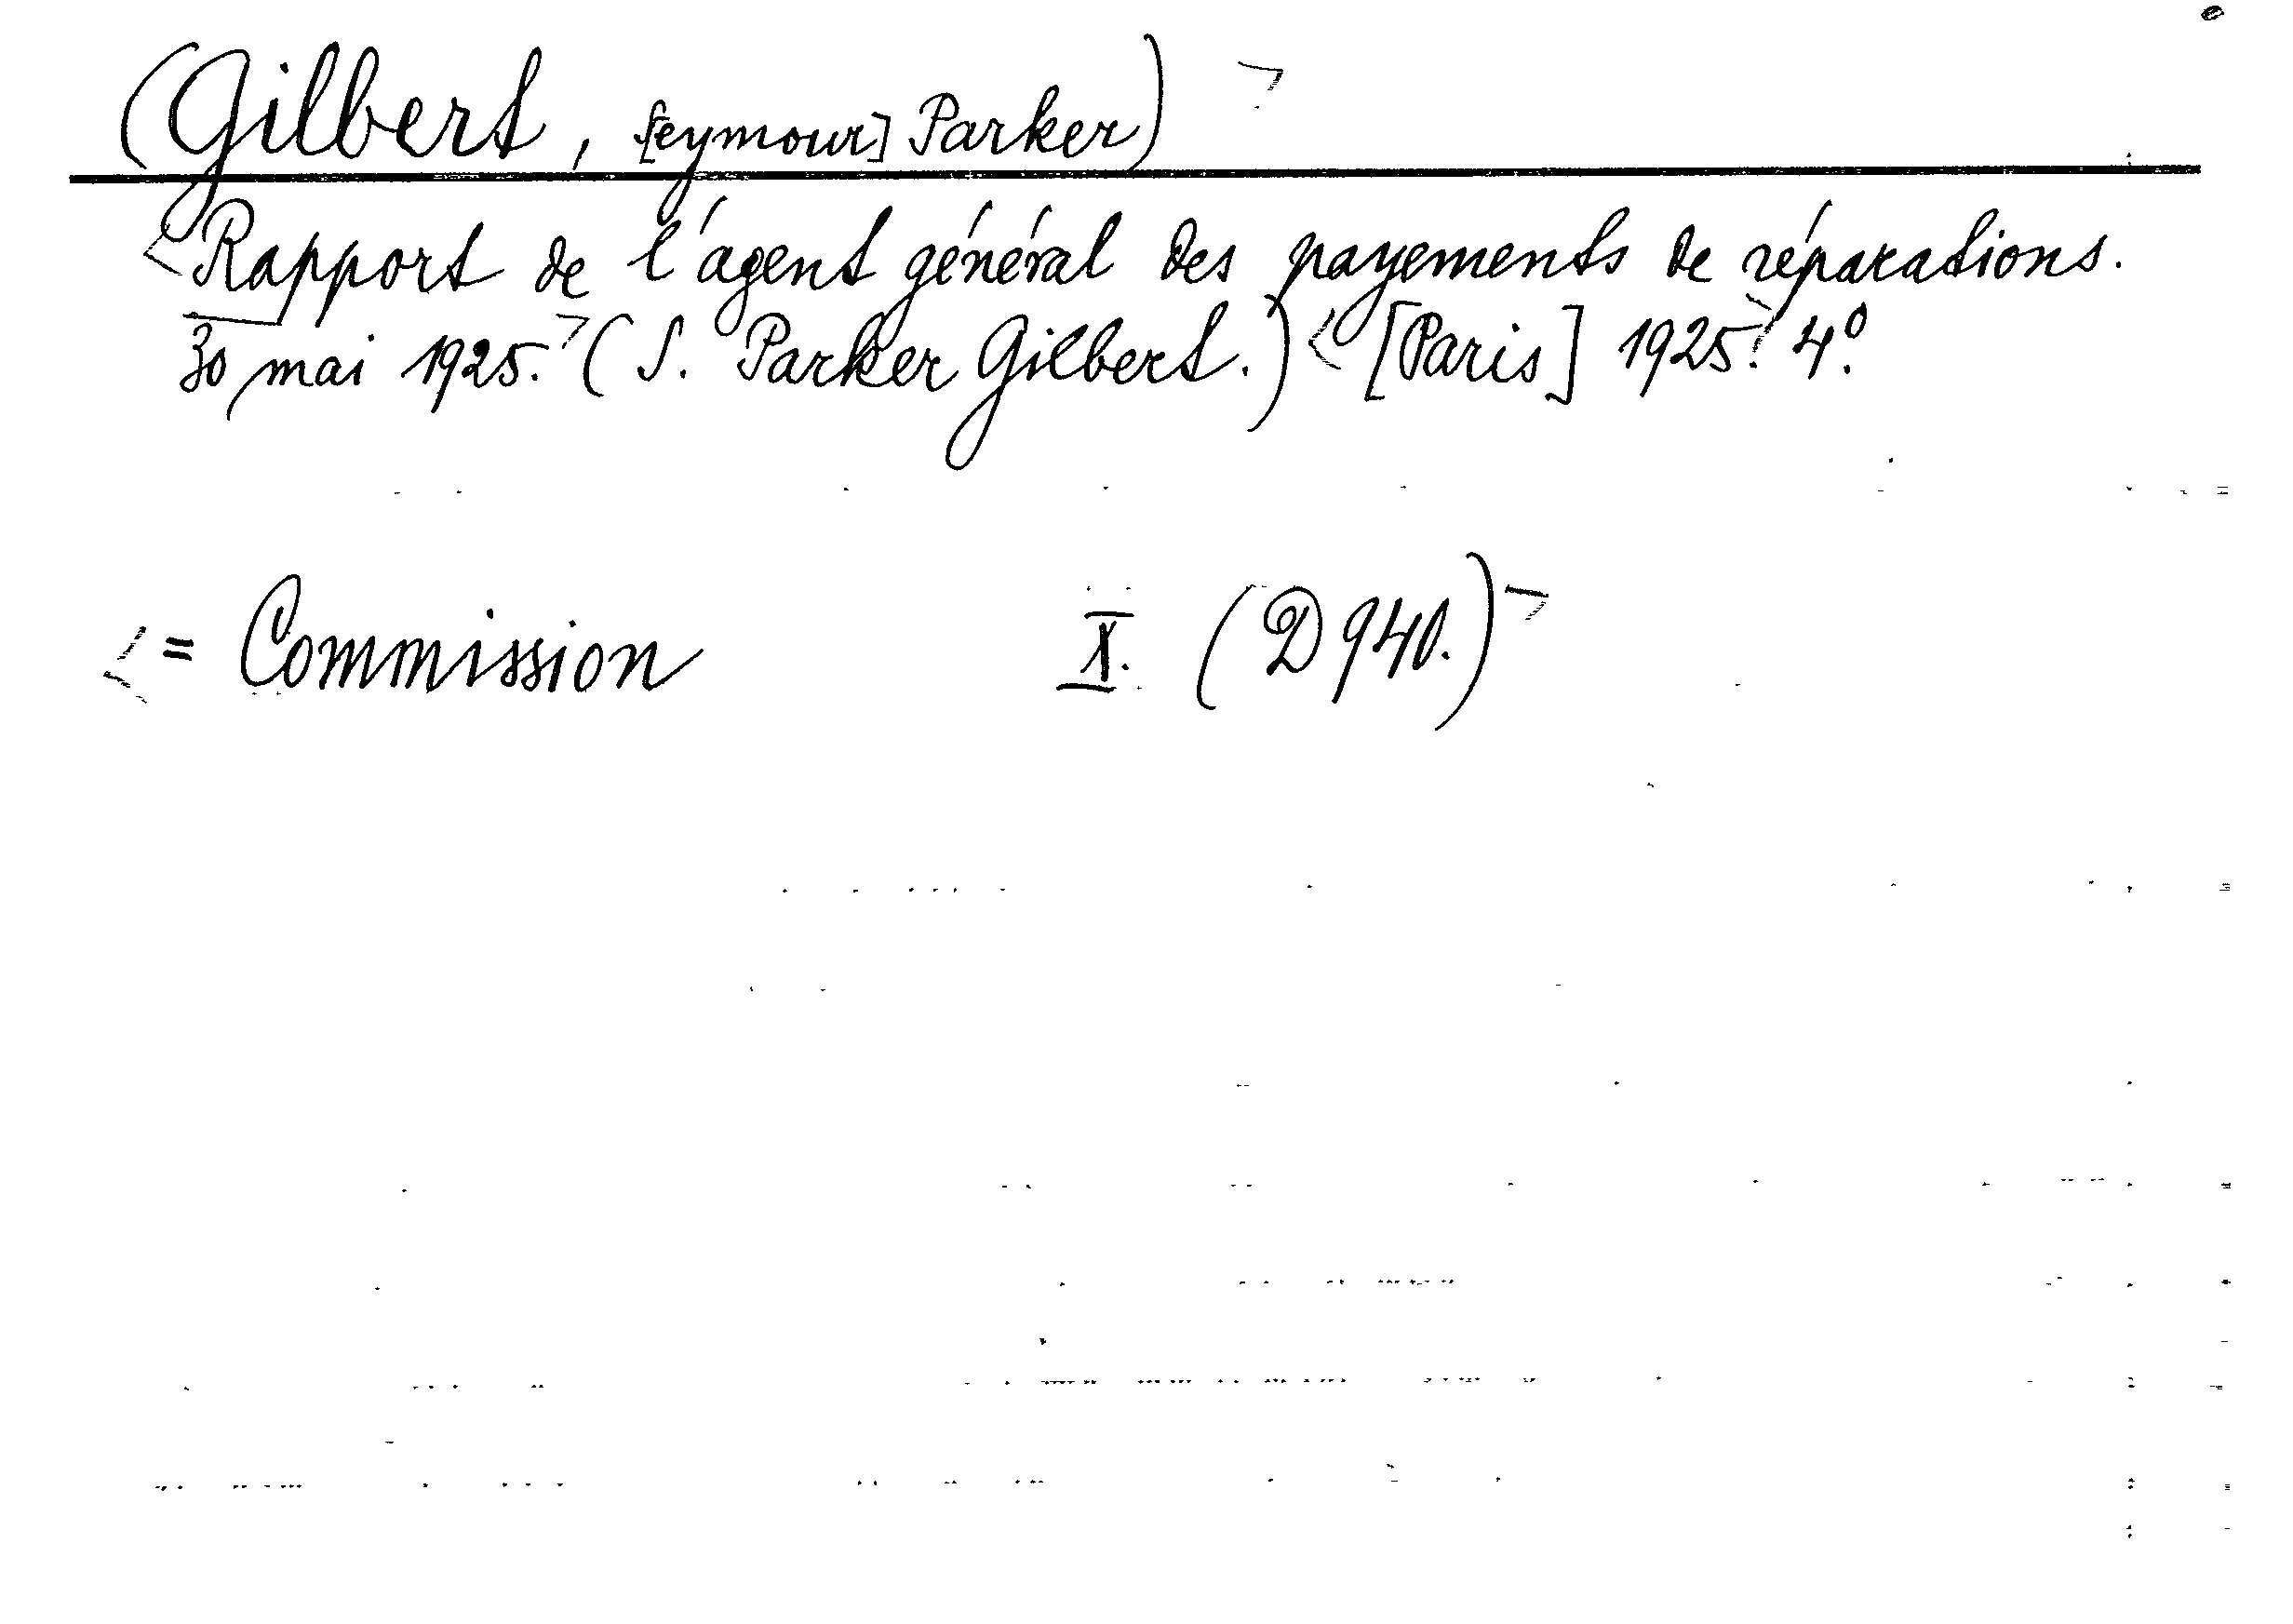 (Gilbert, S[eymour] Parker)>
<Rapport de l'agent général des payements de réparations.
30 mai 1925.> (S. Parker Gilbert.) <[Paris] 1925.> 4.º
<= Commission I. (D 940.)>